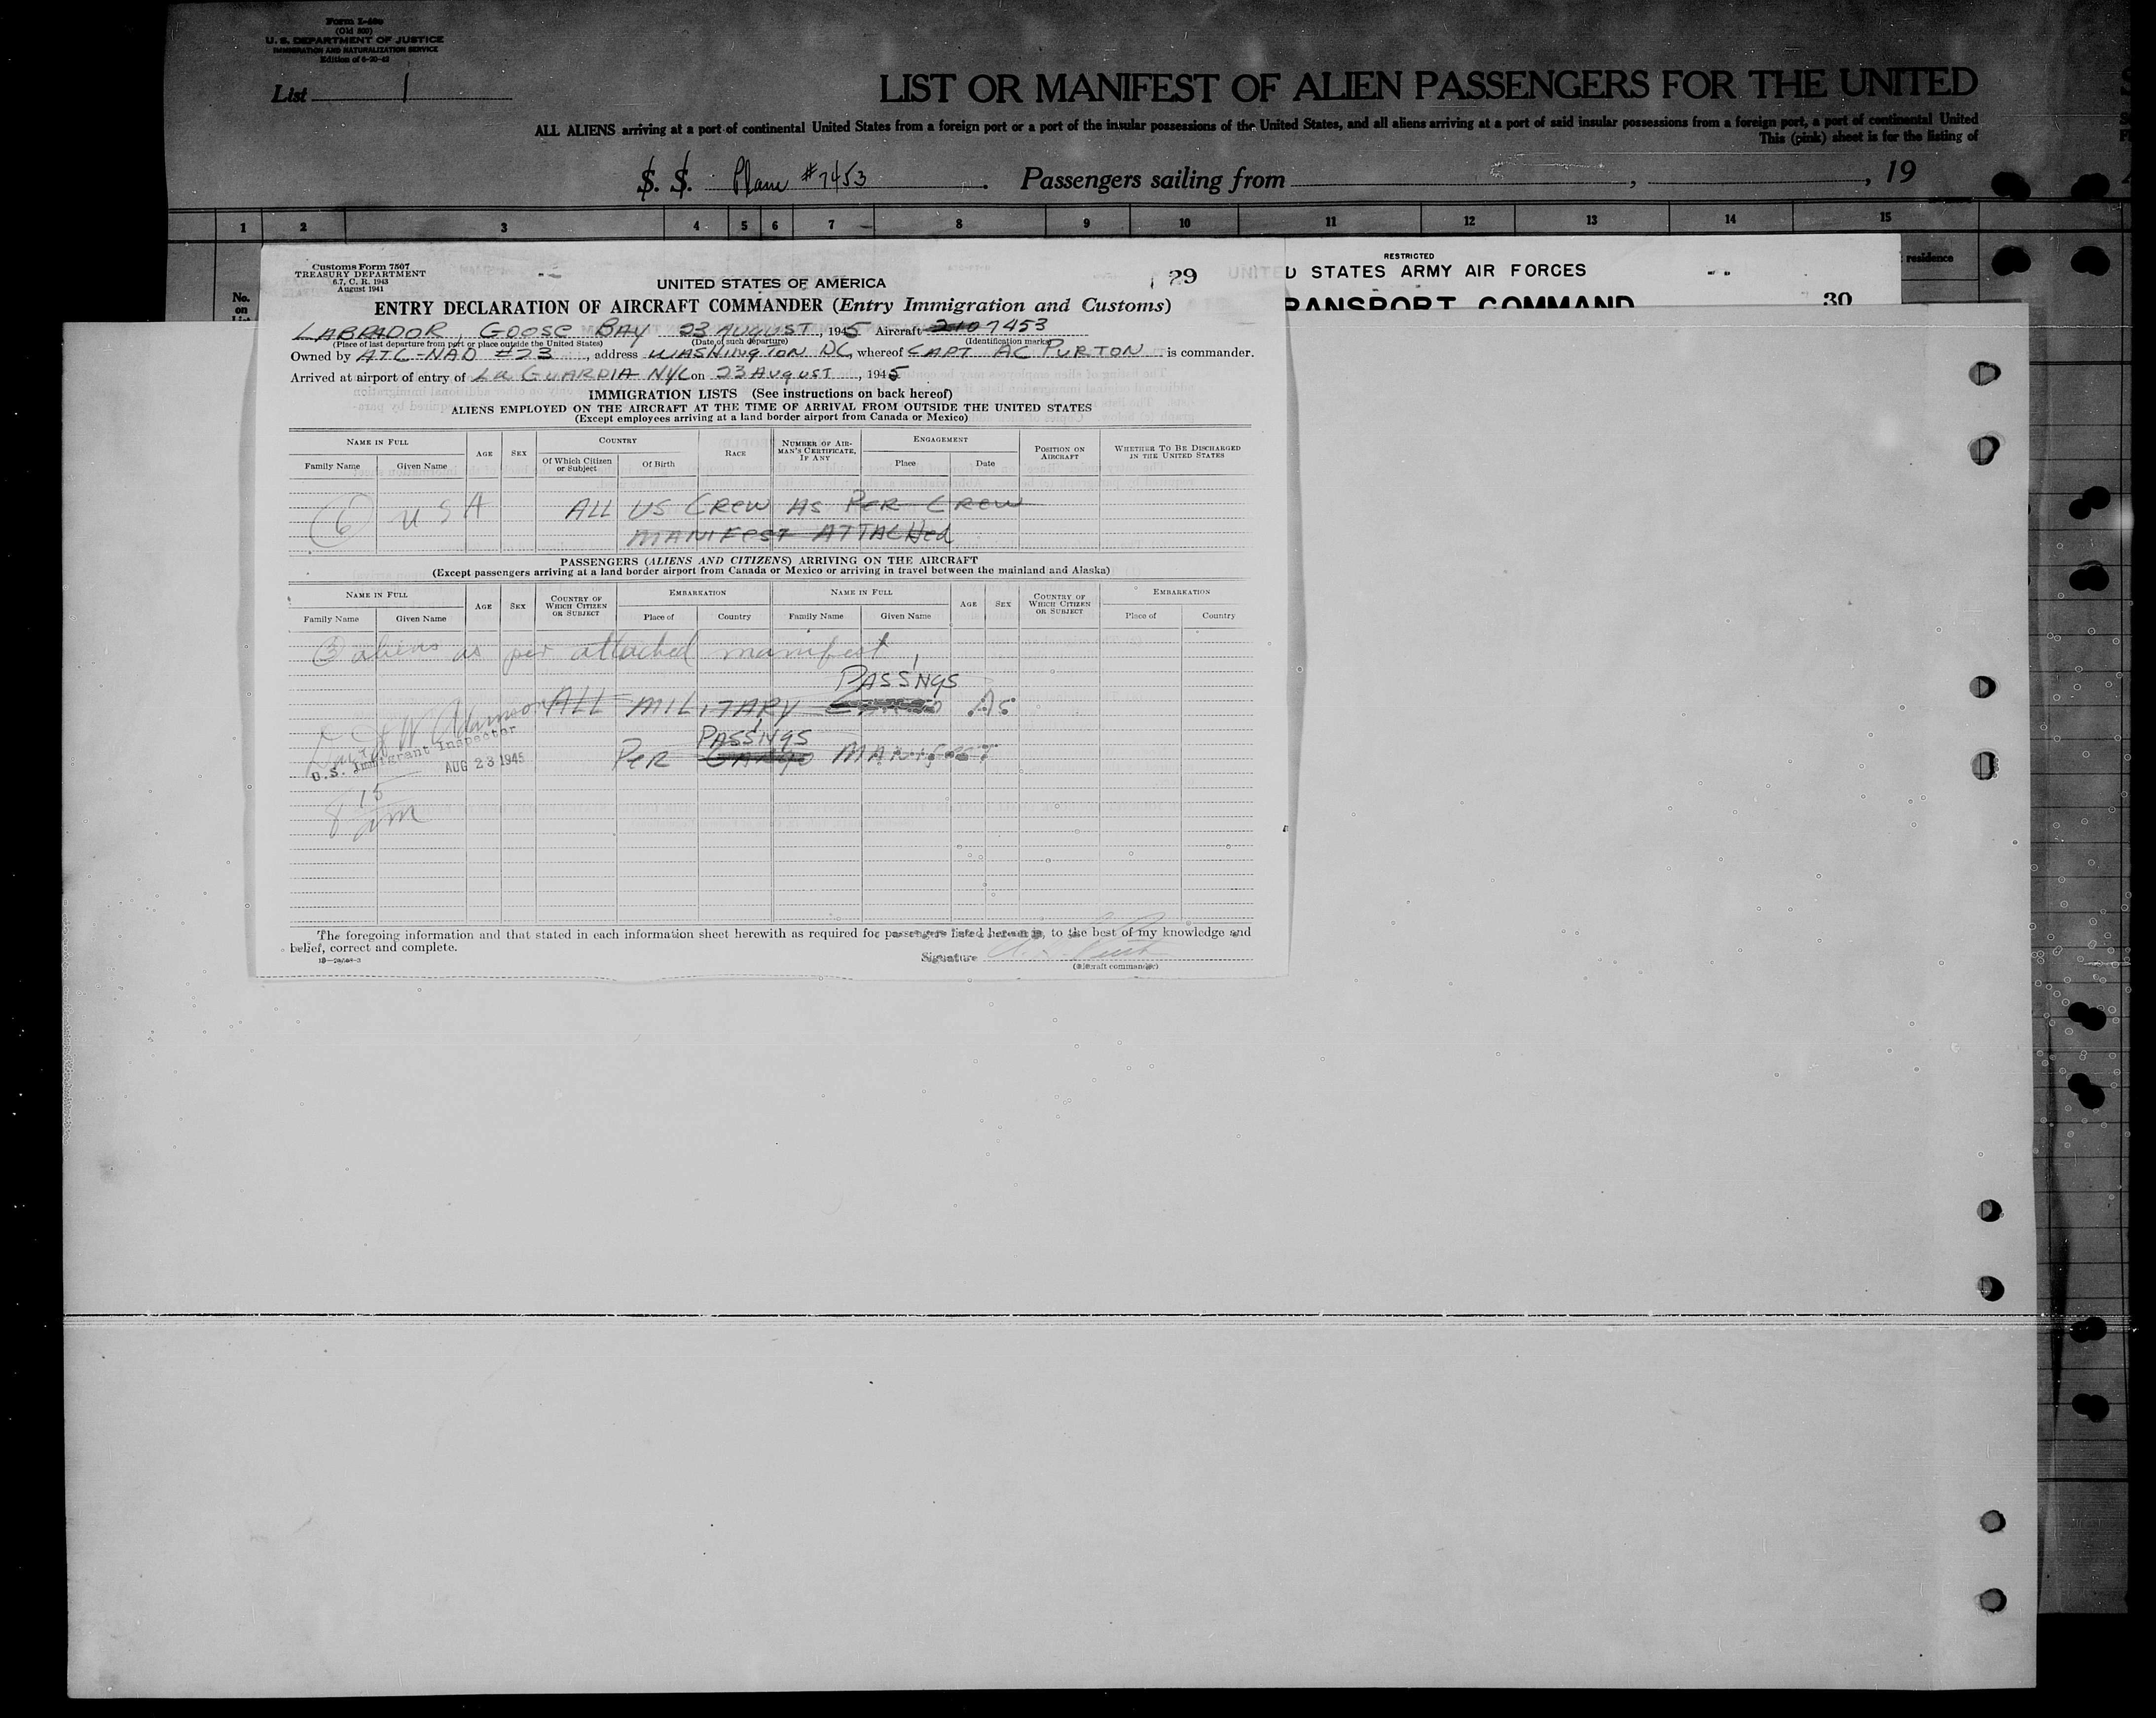 Form I-460
(Old 500)
U. S. DEPARTMENT OF JUSTICE
IMMIGRATION AND NATURALIZATION SERVICE
Edition of 6-20-42
List 1
LIST OR MANIFEST OF ALIEN PASSENGERS FOR THE UNITED
ALL ALIENS arriving at a port of continental United States from a foreign port or a port of the insular possessions of the United States, and all aliens arriving at a port of said insular possessions from a foreign port, a port of continental United
This (pink) sheet is for the listing of
S. S. Plane #7453. Passengers sailing from , , 19
1 2 3 4 5 6 7 8 9 10 11 12 13 14 15
No.
on
residence
RESTRICTED
D STATES ARMY AIR FORCES
RANSPORT COMMAND
30
Customs Form 7507
TREASURY DEPARTMENT
6.7, C. R. 1943
August 1941
29
UNITED STATES OF AMERICA
ENTRY DECLARATION OF AIRCRAFT COMMANDER (Entry Immigration and Customs)
LABRADOR, GOOSE BAY 23 AUGUST, 1945 Aircraft 2107453
(Place of last departure from port or place outside the United States) (Date of such departure) (Identification marks)
Owned by ATC-NAD #23, address WASHINGTON DC, whereof CAPT AC PURTON is commander.
Arrived at airport of entry of La GUARDIA NYC on 23 AUGUST, 1945.
IMMIGRATION LISTS (See instructions on back hereof)
ALIENS EMPLOYED ON THE AIRCRAFT AT THE TIME OF ARRIVAL FROM OUTSIDE THE UNITED STATES
(Except employees arriving at a land border airport from Canada or Mexico)
NAME IN FULL AGE SEX COUNTRY RACE NUMBER OF AIRMAN'S CERTIFICATE, IF ANY ENGAGEMENT POSITION ON AIRCRAFT WHETHER TO BE DISCHARGED IN THE UNITED STATES
Family Name Given Name Of Which Citizen or Subject Of Birth Place Date
6 USA ALL US CREW AS PER CREW
MANIFEST ATTACHED
PASSENGERS (ALIENS AND CITIZENS) ARRIVING ON THE AIRCRAFT
(Except passengers arriving at a land border airport from Canada or Mexico or arriving in travel between the mainland and Alaska)
NAME IN FULL AGE SEX COUNTRY OF WHICH CITIZEN OR SUBJECT EMBARKATION NAME IN FULL AGE SEX COUNTRY OF WHICH CITIZEN OR SUBJECT EMBARKATION
Family Name Given Name Place of Country Family Name Given Name Place of Country
3 aliens as per attached manifest
PASSNGS
ALL MILITARY AS
PASSNGS
PER CARGO MANIFEST
U.S. Immigrant Inspector
AUG 23 1945
8 15 am
The foregoing information and that stated in each information sheet herewith as required for passengers listed hereon is, to the best of my knowledge and
belief, correct and complete.
Signature
(Aircraft commander)